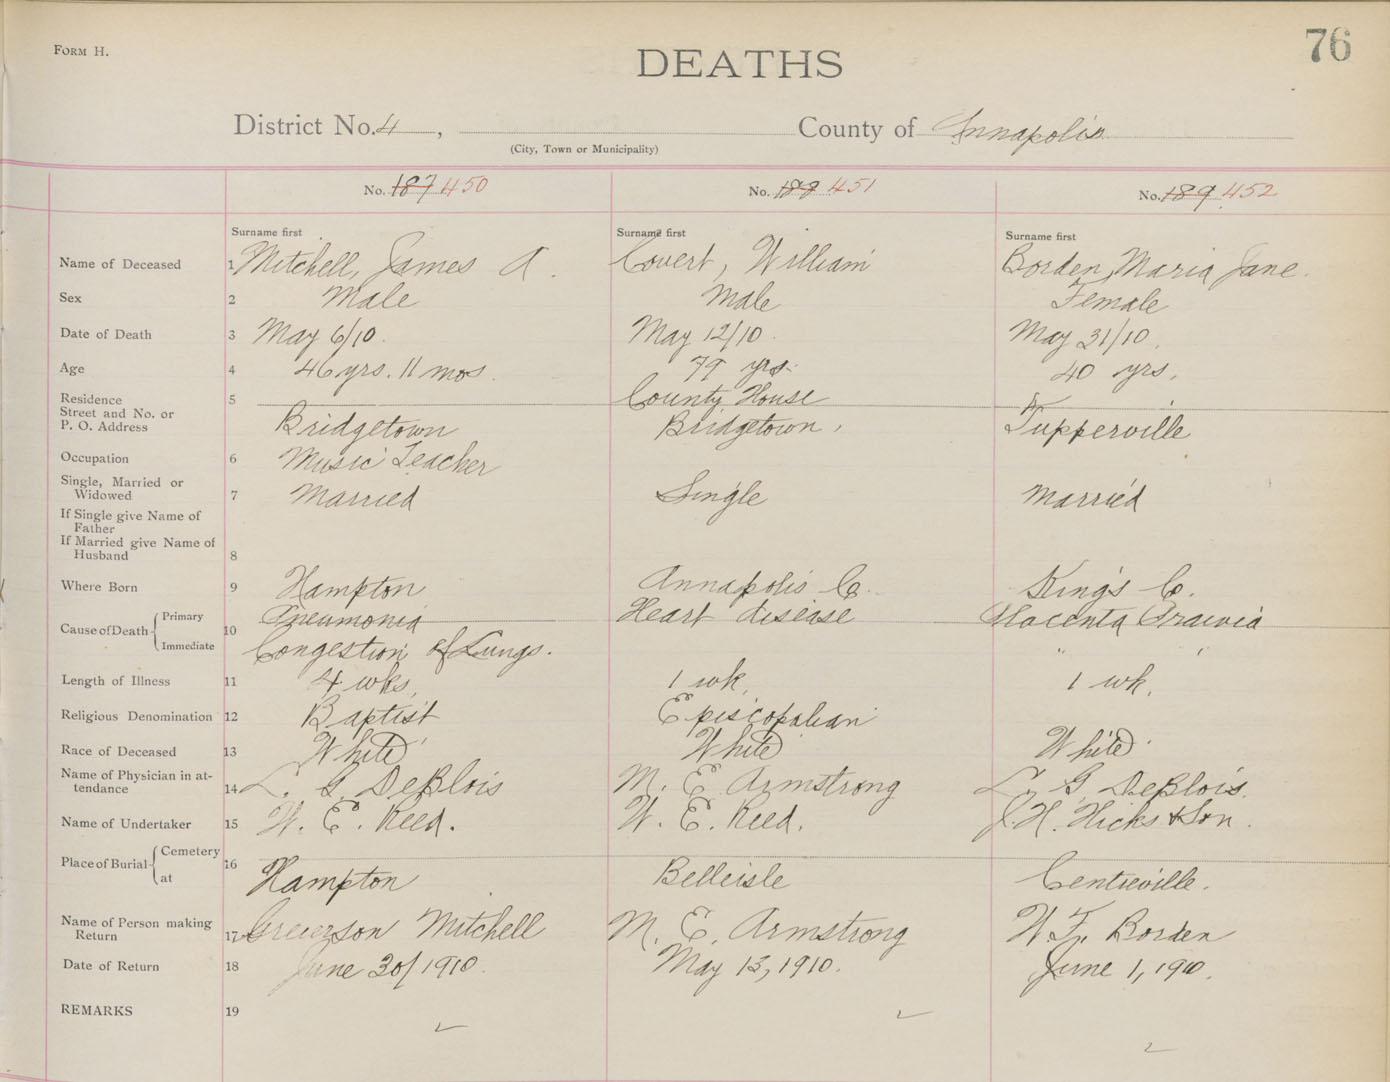 FORM H.
DEATHS
76
District No. 4, County of Annapolis
(City, Town or Municipality)
No. 187 450 No. 188 451 No. 189 452
Surname first Surname first Surname first
Name of Deceased 1 Mitchell, James A. Covert, William Borden, Maria Jane.
Sex 2 Male Male Female
Date of Death 3 May 6/10. May 12/10. May 31/10.
Age 4 46 yrs. 11 mos. 79 yrs. 40 yrs.
Residence 5 County House
Street and No. or
P. O. Address Bridgetown Bridgetown, Tupperville
Occupation 6 Music Teacher
Single, Married or
Widowed 7 Married Single Married
If Single give Name of
Father
If Married give Name of
Husband 8
Where Born 9 Hampton Annapolis Co. Kings Co.
Cause of Death Primary 10 Pneumonia Heart disease Placenta Praevia
Immediate Congestion of Lungs. " "
Length of Illness 11 4 wks. 1 wk. 1 wk.
Religious Denomination 12 Baptist Episcopalian
Race of Deceased 13 White White White
Name of Physician in at-
tendance 14 L. G. DeBlois M. E. Armstrong L. G. DeBlois.
Name of Undertaker 15 W. E. Reed. W. E. Reed. J. H. Hicks & Son.
Place of Burial Cemetery 16
at Hampton Belleisle Centreville.
Name of Person making
Return 17 Greierson Mitchell M. E. Armstrong W. F. Borden
Date of Return 18 June 30/1910. May 13, 1910. June 1, 1910.
REMARKS 19